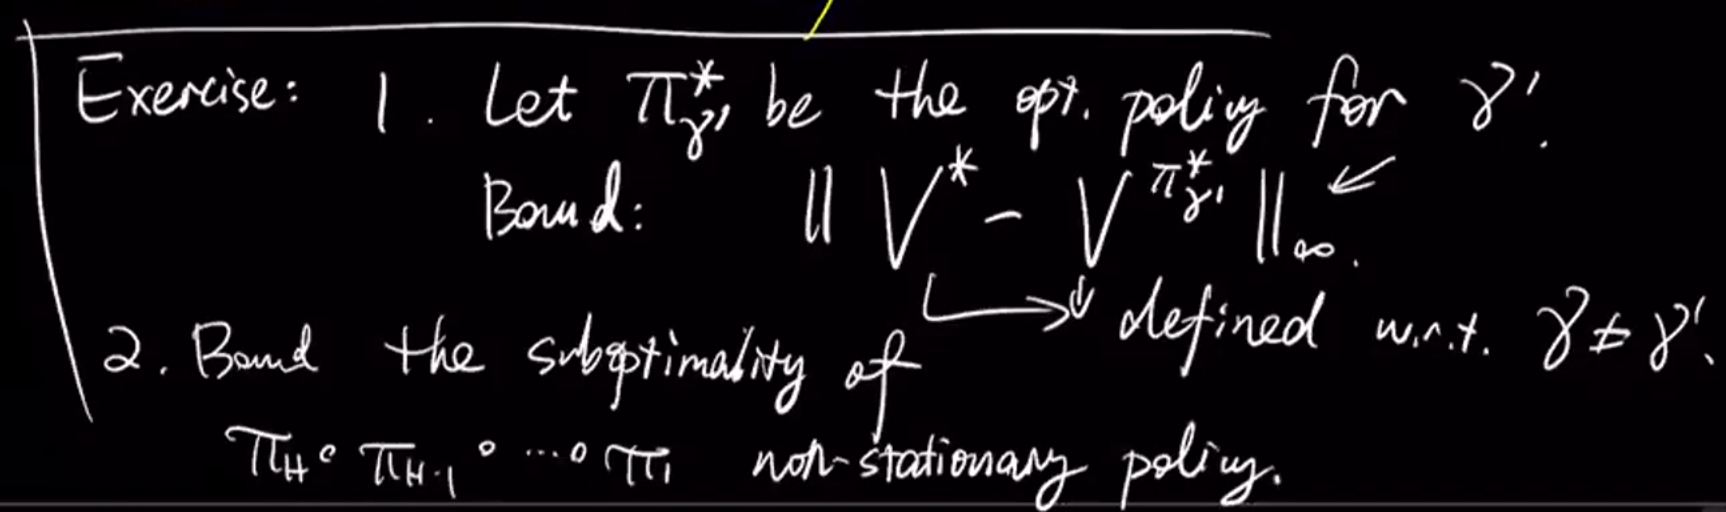 Exercise: 1. Let π*γ' be the opt. policy for γ'.
Bound: ‖ V* - V^π*γ' ‖∞.
defined w.r.t. γ ≠ γ'.
2. Bound the suboptimality of
πH ∘ πH-1 ∘ ... ∘ π1 non-stationary policy.